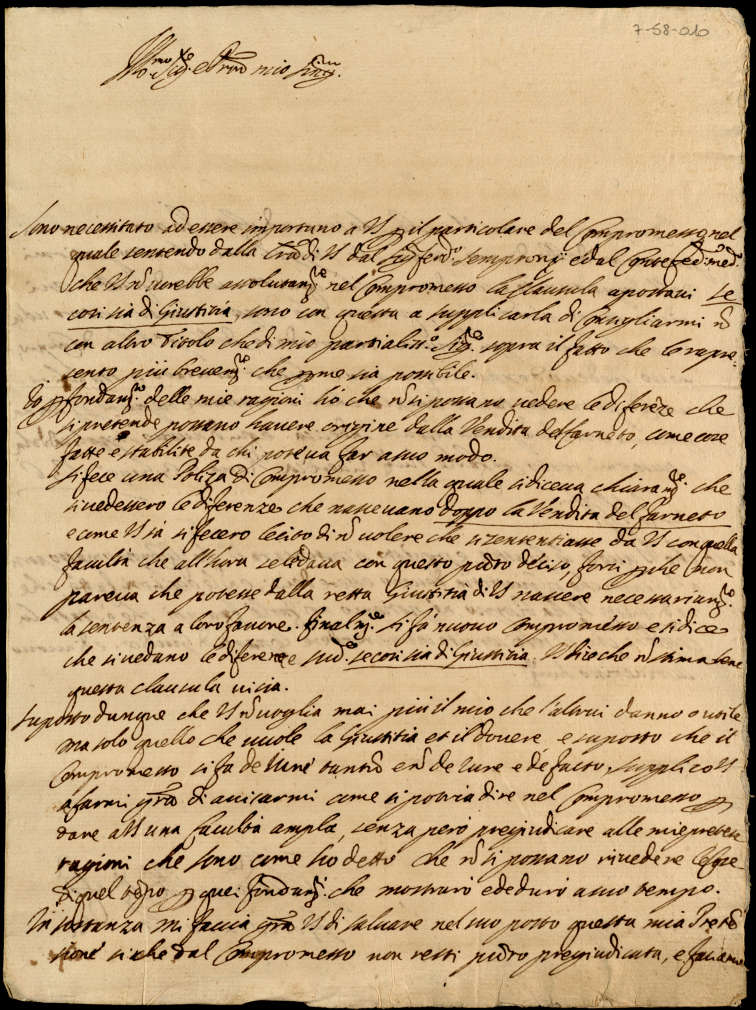 7-58-010
Ill.mo Sig.r e P.ron mio
Sono necessitato ad essere importuno a VS p il particolare del Compromesso, nel
quale sentendo dalla l'ra di VS dal Sig. Ferd.o Sempronij e dal Conte Fed.
che VS nõ vorrebbe assolutam.te nel Compromesso la Clausula apostavi se
così sia di Giustitia, sono con questa a supplicarla di Consigliarmi nõ
con altro titolo che di mio partialiss.o Sig.re sopra il fatto che le rapre-
sento più brevem.te che p me sia possibile.
Io p fondam.to delle mie ragioni hò che nõ si possano vedere le diferẽze che
si pretende possano havere origine dalla Vendita del farneto, come cose
fatte e stabilite da chi poteva far a suo modo.
Si fece una Poliza di Compromesso nella quale si diceva chiaram.te che
si vedessero le diferenze che nascevano doppo la Vendita del farneto
e come VS sà si fecero lecito di nõ volere che si sententiasse da VS con quella
facultà che all'hora se le dava con questo pũto deciso, forsi p che non
pareva che potesse dalla retta Giustitia di VS nascere necessariam.te
la sentenza a loro favore. finalm.te si fà nuovo Compromesso e si dice
che si vedano le diferenze sud.e se così sia di Giustitia. VS dice che nõ stima bene
questa clausula vi sia.
Suposto dunque che VS nõ voglia mai più il mio che l'altrui danno o utile
ma solo quello che vuole la Giustitia et il dovere e suposto che il
Compromesso si fà de Iure tantũ e nõ de Iure e de facto. Supplico VS
a farmi gra di avisarmi come si possa dire nel Compromesso p
dare a VS una facultà ampla, senza però pregiudicare alle mie pretese
ragioni che sono come hò detto che nõ si possano rivedere le cose
di quel tẽpo p quei fondam.ti che mostrarò e dedurò a suo tempo.
In sostanza mi faccia gra VS di salvare nel suo posto questa mia Pretẽ-
sione si che dal Compromesso non resti pũto pregiudicata, e facciamo